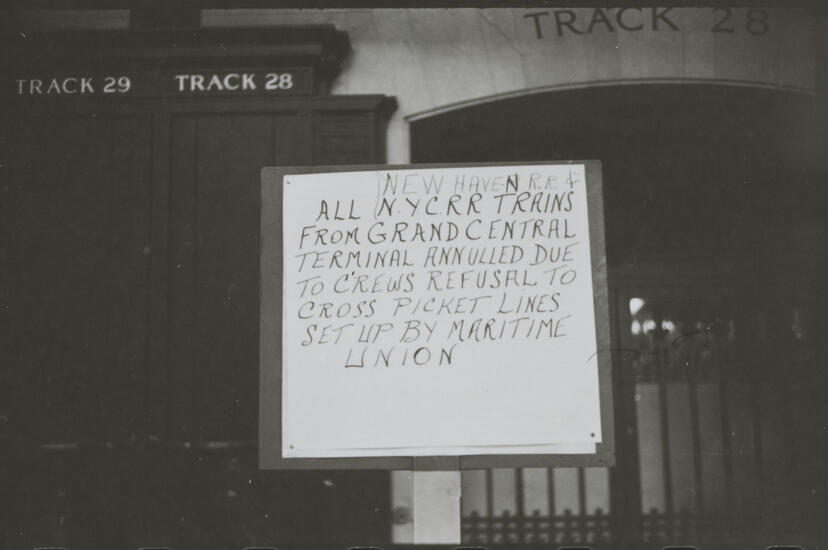 TRACK 28
TRACK 29
TRACK 28
NEW HAVEN R.R. &
ALL N.Y.C.RR TRAINS
FROM GRAND CENTRAL
TERMINAL ANNULLED DUE
TO CREWS REFUSAL TO
CROSS PICKET LINES
SET UP BY MARITIME
UNION